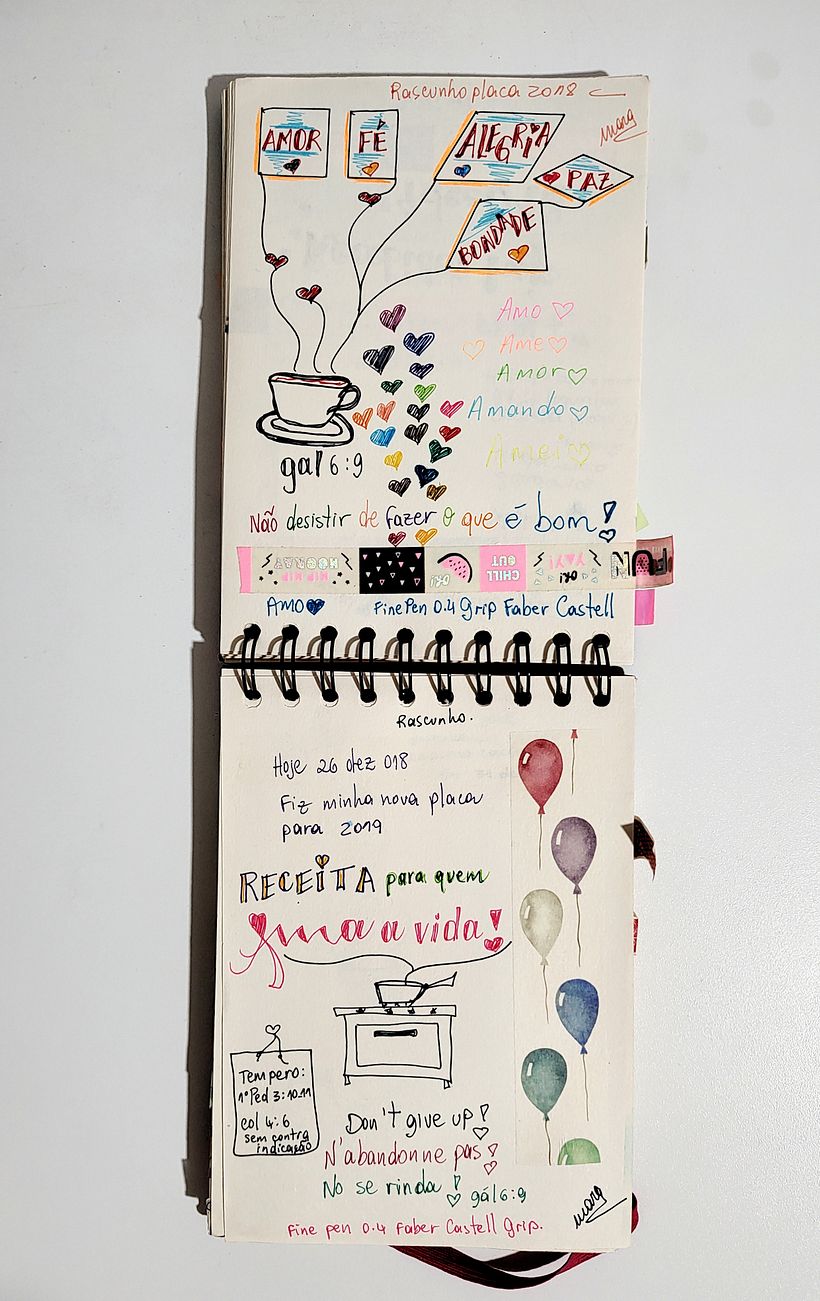 Rascunho placa 2018
marg
AMOR
FÉ
ALEGRiA
PAZ
BONDADE
Amo
Ame
Amor
Amando
Amei
gal 6:9
Não desistir de fazer o que é bom!
HIP HIP HOORAY
OK!
CHILL OUT
OK! YAY!
FUN
AMO
FinePen 0.4 Grip Faber Castell
Rascunho.
Hoje 26 dez 018
Fiz minha nova placa
para 2019
RECEiTA para quem
Ama a vida!
Tempero:
1º Ped 3:10.11
col 4:6
sem contra
indicação
Don't give up!
N'abandonne pas!
No se rinda!
gál 6:9
marg
Fine pen 0.4 Faber Castell Grip.